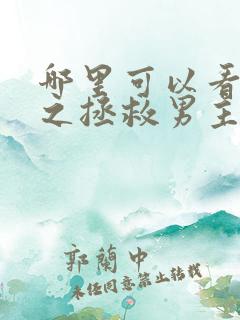 哪里可以看
之拯救男主
郭蘭中
未经同意禁止转载